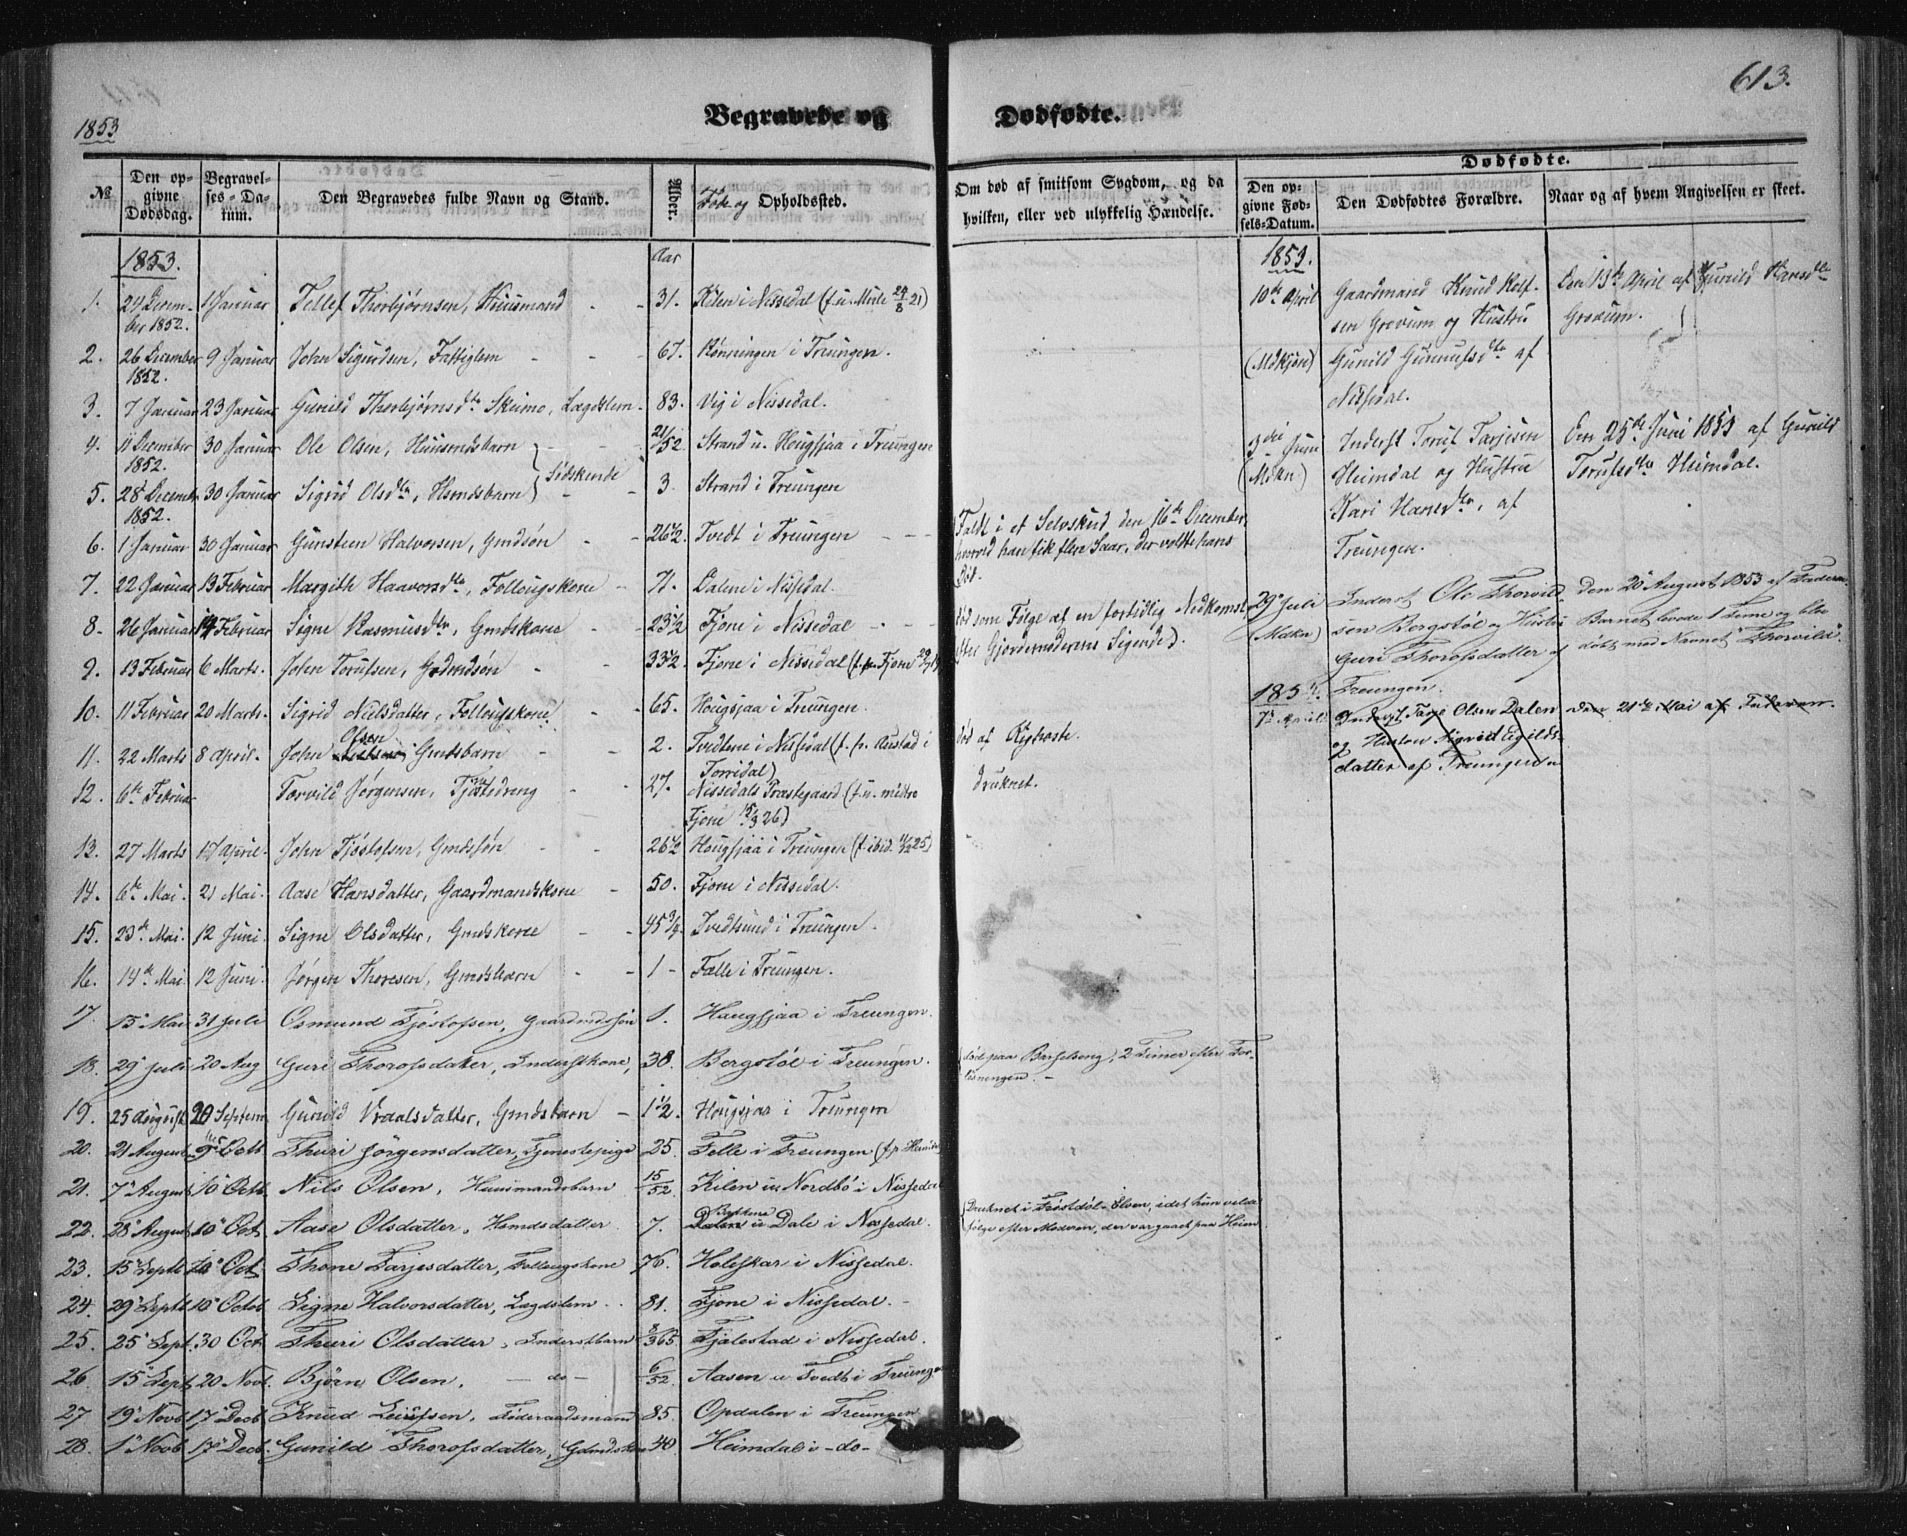 613.
1853
Begravede og Dødfødte.
Dødfødte.
№
Den opgivne Dødsdag.
Begravelses-Datum.
Den Begravedes fulde Navn og Stand.
Alder.
Føde og Opholdssted.
Om død af smitsom Sygdom, og da hvilken, eller ved ulykkelig Hændelse.
Den opgivne Fødsels-Datum.
Den Dødfødtes Forældre.
Naar og af hvem Angivelsen er skeet.
1853. Aar
1. 24 Decem- 1 Januar Tellef Thorbjørnsen, Huusmand - - 31. Kilen i Nissedal (f. u. Mule 24/8 21)
ber 1852.
2. 26 December 9 Januar John Sigurdsen, Fattiglem - - 67. Rønningen i Treungen.
1852.
3. 7 Januar 23 Januar Gunild Thorbjørnsdtr Skeimo, Lægdslem - 83. Vig i Nissedal.
4. 11 December 30 Januar Ole Olsen, Huusmdsbarn 21/52 Strand u. Hougsjaa i Treungen
1852. Sødskende
5. 28 December 30 Januar Sigrid Olsdtr, Hsmdsbarn 3 Strand i Treungen
1852.
6. 1 Januar 30 Januar Gunsteen Halvorsen, Gmdsøn - - 26 1/2 Tvedt i Treungen - - - Faldt i et Selvskud den 16de December,
hvorved han fik flere Saar, der voldte hans
Død.
7. 22 Januar 13 Februar Margith Haavorsdtr, Follougskone - 71. Dalene i Nissedal.
8. 26 Januar 14 Februar Signe Rasmusdtr, Gmdskone - - 23 1/2 Fjone i Nissedal - - - død som Følge af en fortidlig Nedkomst
efter Gjordemoderens Sigende).
9. 13 Februar 6 Marts. John Torufsen, Gdmdsøn - 33 1/2 Fjone i Nissedal
10. 11 Februar 20 Marts. Sigrid Nielsdatter, Follougskone - - 65. Hougsjaa i Treungen.
11. 22 Marts 8 April. John Olsen Gmdsbarn - - 2. Tvedtene i Nissedal (f. p. Rustad i død af Kighoste.
Torridal)
12. 6te Februar Torvild Jørgensen, Tjenstedreng - 27. Nissedals Præstegaard (f. u. midtre druknet.
Fjone 15/3 26)
13. 27 Marts 17 April. John Tjøstofsen, Gmdssøn - - 26 1/2 Hougsjaa i Treungen (f. ibid. 11/12 25)
14. 6te Mai. 21 Mai. Aase Hansdatter, Gaardmandskone - 50. Fjone i Nissedal.
15. 23de Mai. 12 Juni. Signe Olsdatter, Gmdskone - - 45 3/4 Tvedtsund i Treungen.
16. 14de Mai. 12 Juni. Jørgen Thoresen, Gmdsbarn - - 1 - Fælle i Treungen.
17. 15 Mai 31 Juli Osmund Tjøstofsen, Gaardmdssøn 1. Haugsjaa i Treungen.
18. 29 Juli 20 Aug Guri Thorofsdatter, Inderstkone, 38. Bergstøl i Treungen. død paa Barselseng, 2 Timer efter For-
løsningen. -
19. 25 August 20 Septem Gunild Vraalsdatter, Gmdsbarn - 1 1/2. Hougsjaa i Treungen
20. 21 August 9 Octb Thuri Jørgensdatter, Tjenestepige 25. Felle i Treungen
21. 7 August 10 Octb Nils Olsen, Huusmandsbarn 15/52 Kilen u. Nordbø i Nissedal
22. 28 August 10 Oct Aase Olsdatter, Hsmdsdatter 7. Dalen u Dale i Nissedal. Druknet i Trøstdøl-Elven, idet hun vilde
følge efter Moderen, der var gaaet paa Heien
23. 15 Septb 10 Oct Thone Tarjesdatter, Follougskone 76. Holeskar i Nissedal.
24. 29 Septb 10 Octob Signe Halvorsdatter, Lægdslem . . 81. Fjone i Nissedal. -
25. 25 Sept 30 Oct Thuri Olsdatter, Inderstbarn 8/365 Fjalestad i Nissedal.
26. 15 Sept 20 Novb. Bjørn Olsen, - do - 6/52 Aasen u Tvedt i Treungen
27. 19 Novb 17 Decb. Knud Leifsen, Føderaadsmand 85. Opdalen i Treungen
28. 1 Novb 17 Decb. Gunild Thorofsdatter, Gdmdskone 40. Heimdal i - do -
1853.
10de April Gaardmand Knud Rolf- Den 13de April af Gunild Hansdtr
sen Grovum og Hustru Grovum.
(Mdkjøn) Gunild Gunnufsdtr af
Nissedal.
3die Juni Inderst Toruf Tarjesen Den 25de Juni 1853 af Gunild
(Mdkn) Heimdal og Hustru Torufsdtr Heimdal.
Kari Hansdtr, af
Treungen.
29 Juli Inderst Ole Thorvild- Den 20 August 1853 af Faderen.
(Mdkn) sen Bergstøl og Hustru Barnet levede 1 Time og blev
Guri Thorofsdatter af døbt med Navnet "Thorvild".
Treungen.
7de April Inderst Taje Olsen Dalen den 21de Mai af Faderen.
og Hustru Sigrid Egilds-
datter af Treungen